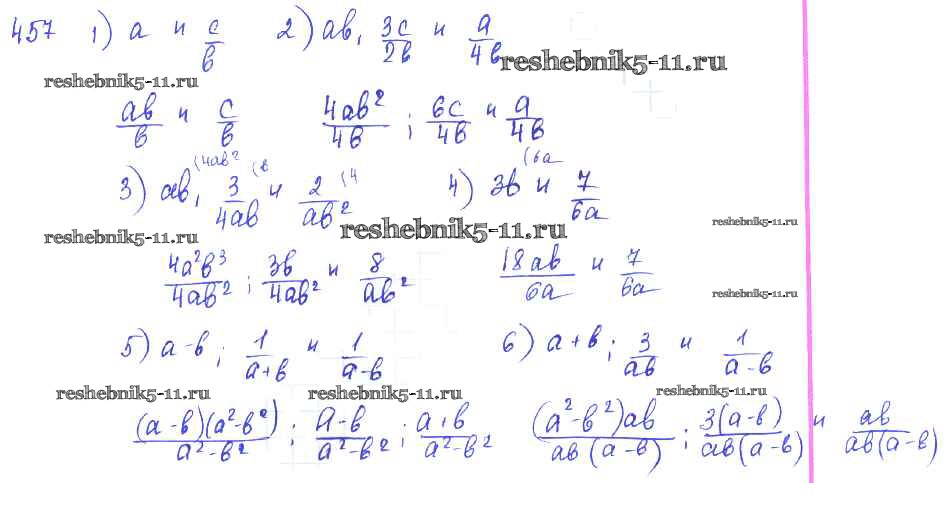 457 1) a и c/b 2) ab, 3c/2b и a/4b
reshebnik5-11.ru reshebnik5-11.ru
ab/b и c/b 4ab²/4b ; 6c/4b и a/4b
3) ab, (4ab² 3/4ab (b и 2/ab² (4 4) 3b (6a и 7/6a
reshebnik5-11.ru reshebnik5-11.ru reshebnik5-11.ru
4a²b³/4ab² ; 3b/4ab² и 8/ab² 18ab/6a и 7/6a
reshebnik5-11.ru
5) a-b ; 1/a+b и 1/a-b 6) a+b ; 3/ab и 1/a-b
reshebnik5-11.ru reshebnik5-11.ru reshebnik5-11.ru
(a-b)(a²-b²)/a²-b² ; a-b/a²-b² ; a+b/a²-b² (a²-b²)ab/ab(a-b) ; 3(a-b)/ab(a-b) и ab/ab(a-b)